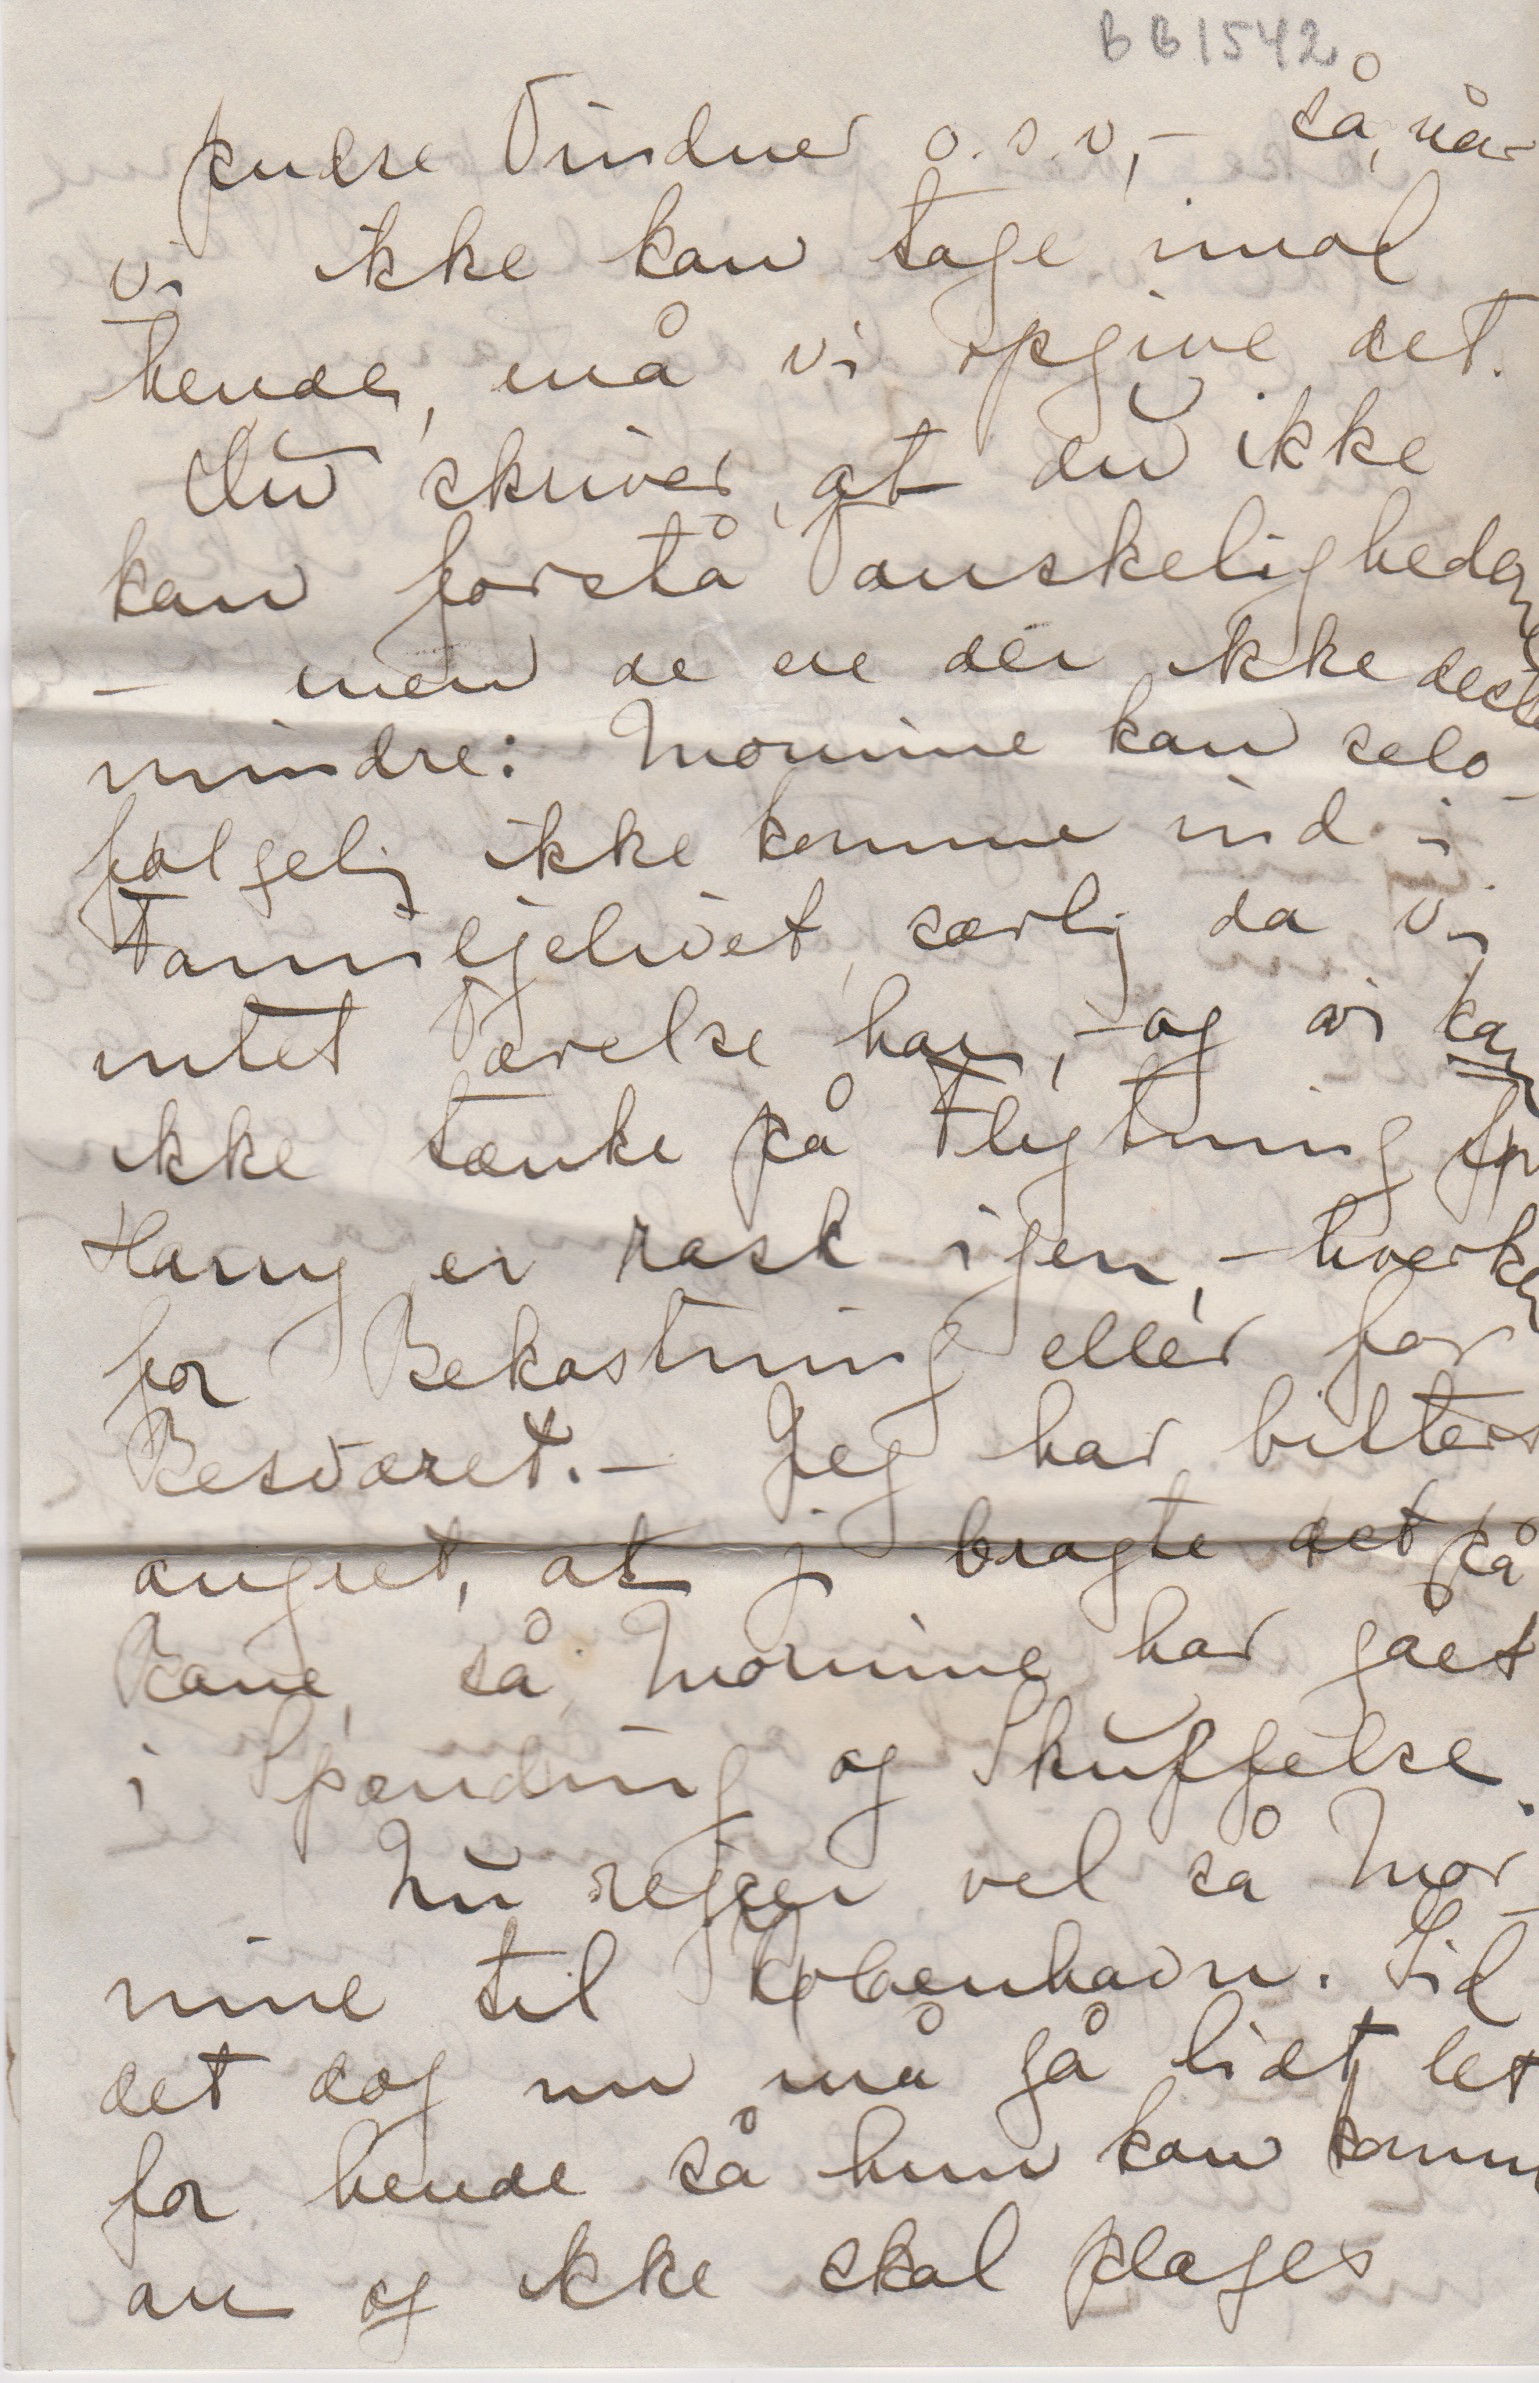 BB1542
pudse Vinduer o.s.v, - så, når
vi ikke kan tage imod
hende, må vi opgive det.
Du skriver, at du ikke
kan forstå Vanskeligheden
- men de ere der ikke desto
mindre: Mornine kan selv-
følgelig ikke komme ind i
Familjelivet, særlig da vi
intet Værelse har, - og vi kan
ikke tænke på Flytning før
Harry er rask igen, - hverken
for Bekostning eller for
Besværet. - Jeg har bittert
angret, at j bragte det på
Bane, så Mornine har gået
i Spænding og Skuffelse.
Nu rejser vel så Mor-
nine til København. Gid
det dog nu må gå lidt let
for hende så hun kan komme
an og ikke skal plages